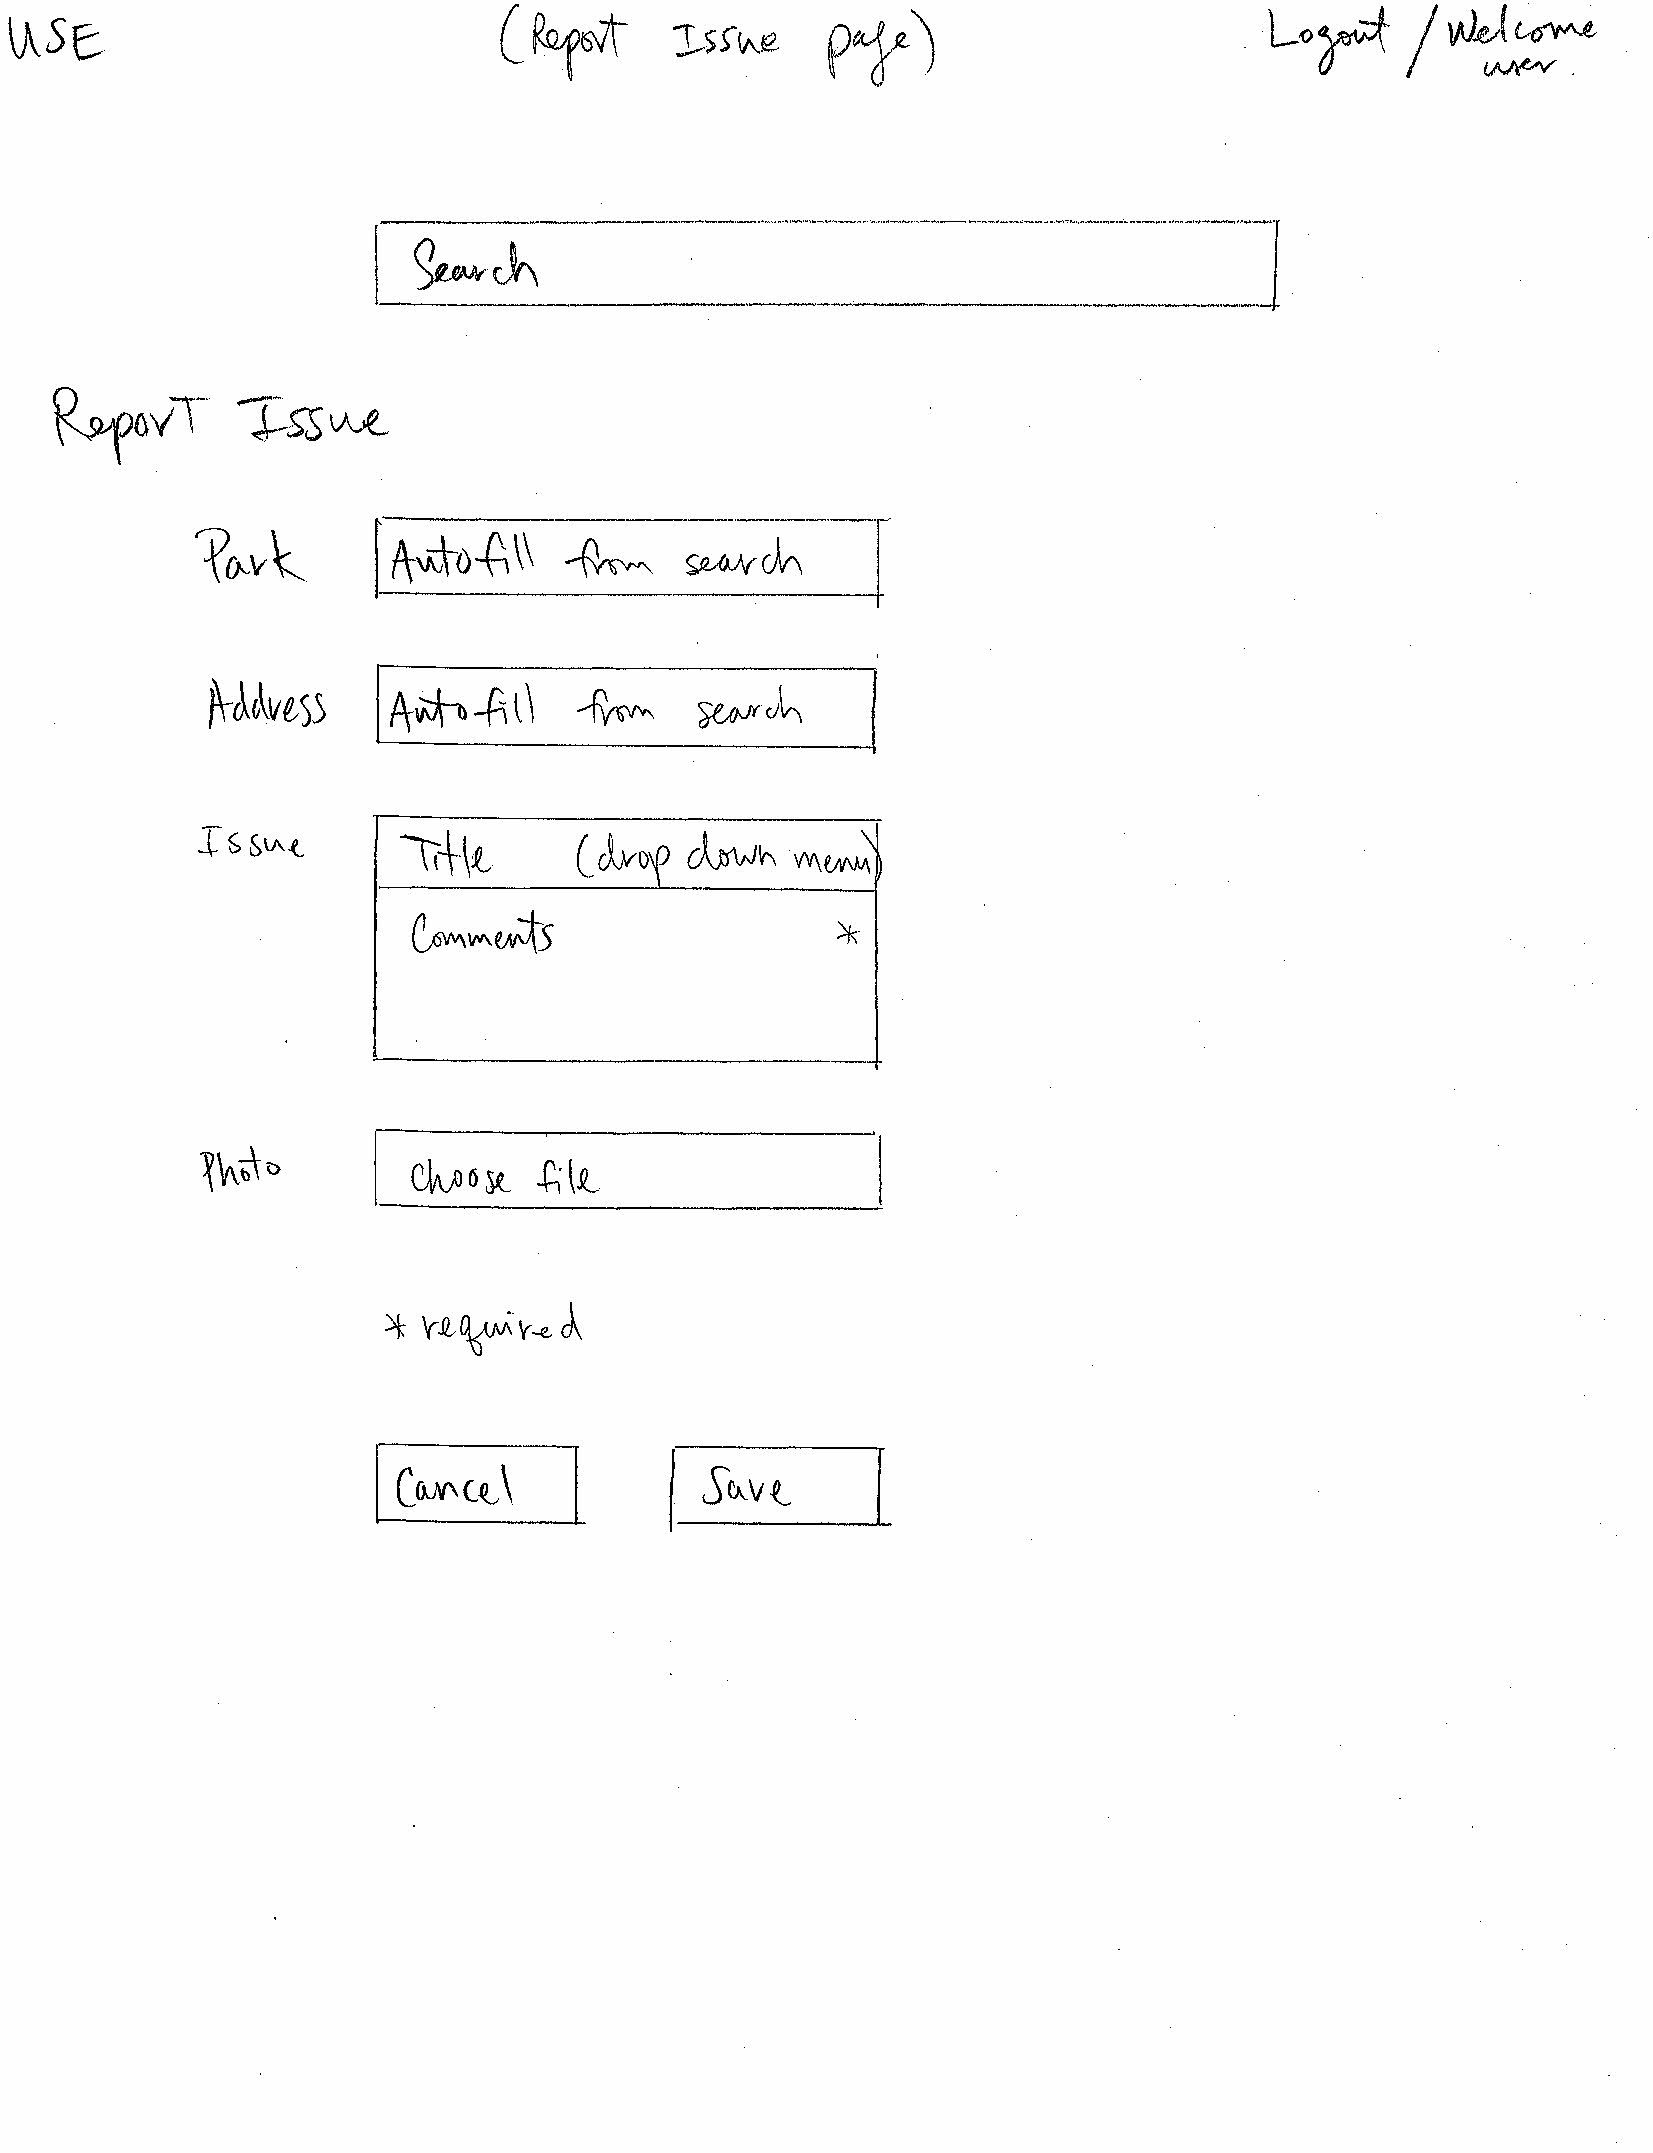 USE (Report Issue page) Logout / Welcome
user.
Search
Report Issue
Park Autofill from search
Address Autofill from search
Issue Title (drop down menu)
Comments *
Photo choose file
* required
Cancel Save